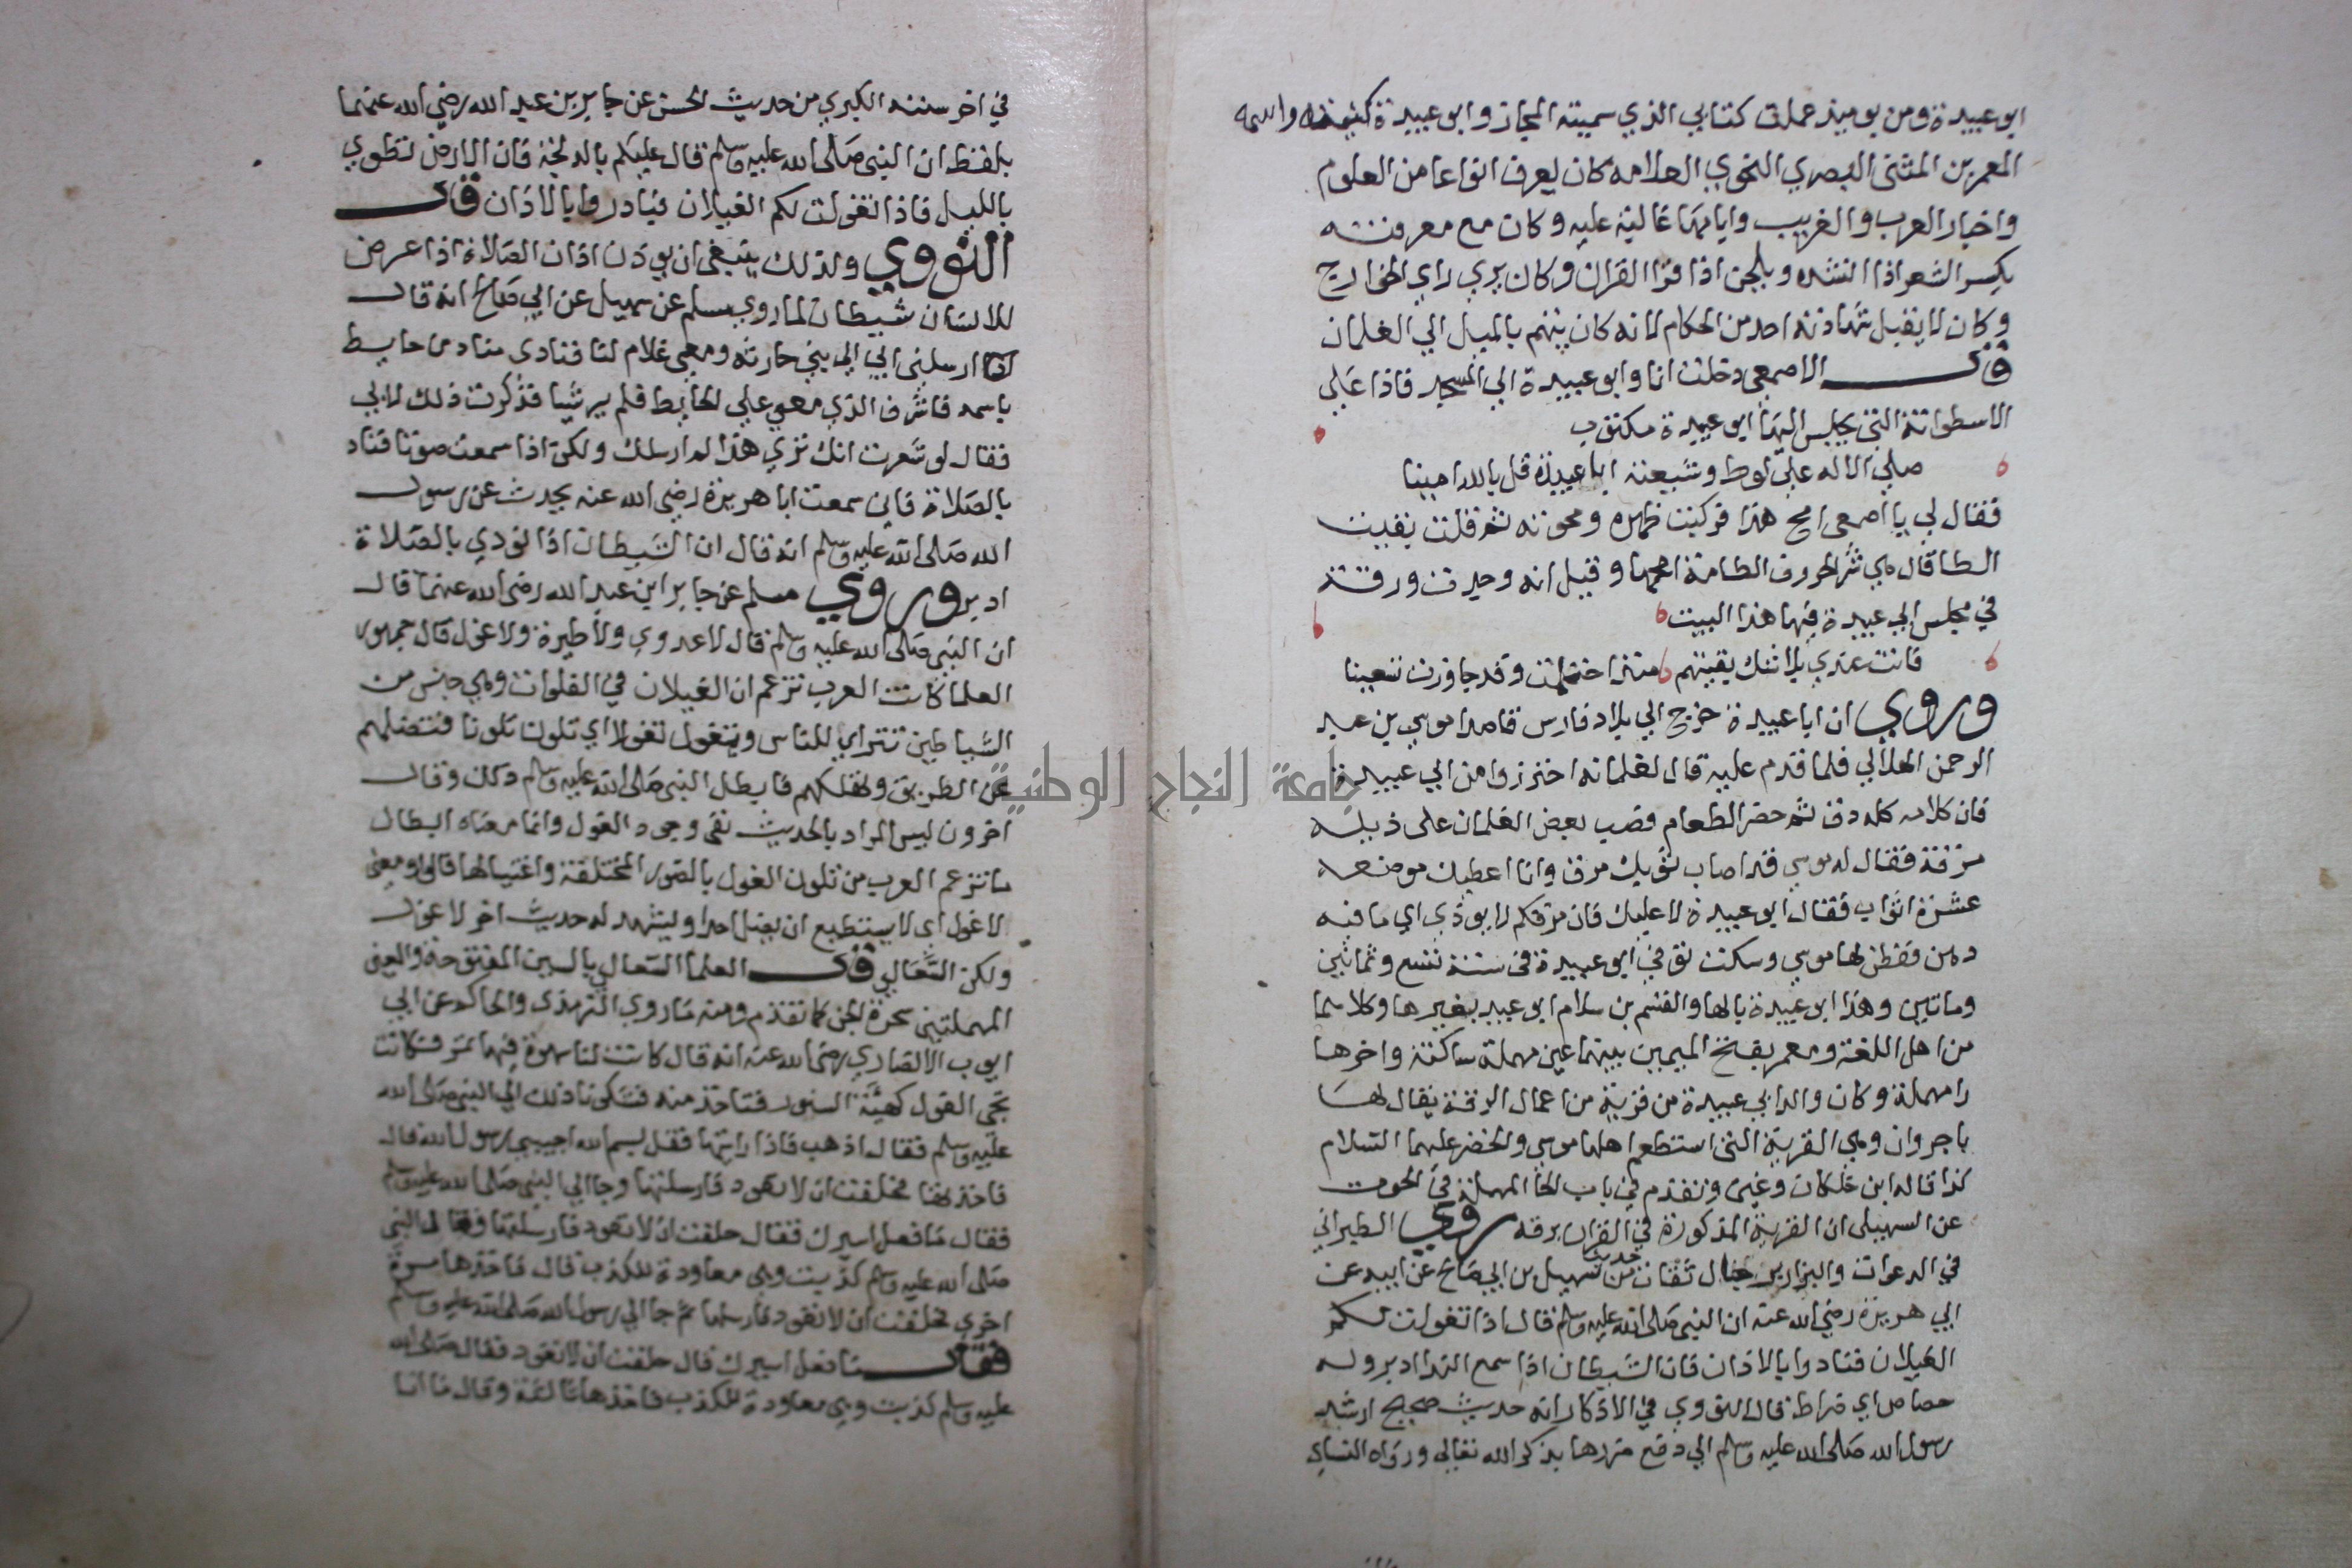 ابو عبيدة ومن يوميذ عملت كتابي الذي سميته المجاز وابو عبيدة كنيته واسمه
المعمر بن المثنى البصري النحوي العلامه كان يعرف انواعا من العلوم
واخبار العرب والغريب وايامها غالبة عليه وكان مع معرفته
يكسر الشعر اذا انشده ويلحن اذا قرا القران وكان يري راي الخوارج
وكان لا يقبل شهادته احد من الحكام لانه كان يتهم بالميل الي الغلمان
قال الاصمعي دخلت انا وابو عبيدة الي المسجد فاذا علي
الاسطوانة التي يجلس اليها ابو عبيدة مكتوب
صلي الاله علي لوط وشيعته ابا عبيدة قل بالله امينا
فقال لي يا اصمعي امح هذا فركبت ظهره ومحوته ثم قلت بقيت
الطا قال هي شر الحروف الطامة امحها وقيل انه وجدت ورقة
في مجلس ابي عبيدة فيها هذا البيت
فانت عندي بلا شك بقيتهم منذ احتلمت وقد جاوزت تسعينا
وروي ان ابا عبيدة خرج الي بلاد فارس قاصدا موسي بن عبد
الرحمن الهلالي فلما قدم عليه قال لغلمانه احترزوا من ابي عبيدة
فان كلامه كله دق ثم حضر الطعام فصب بعض الغلمان علي ذيله
مرقة فقال له موسي قد اصاب ثوبك مرق وانا اعطيك موضعه
عشرة اثواب فقال ابو عبيدة لا عليك فان مرقكم لا يوذي اي ما فيه
دهن ففطن لها موسي وسكت توفي ابو عبيدة في سنة تسع وثمانين
وماتين وهذا ابو عبيدة بالها والقسم بن سلام ابو عبيد بغيرها وكلاهما
من اهل اللغة ومعمر بفتح الميمين بينهما عين مهملة ساكنة واخرها
را مهملة وكان والد ابي عبيدة من قرية من اعمال الرقة يقال لها
باجروان وهي القرية التي استطعم اهلها موسي والخضر عليهما السلام
كذا قاله ابن خلكان وغيره وتقدم في باب الحا المهملة في الحوت
عن السهيلي ان القرية المذكورة في القران برقه روي الطبراني
في الدعوات والبزار برجال ثقات من حديث سهيل بن ابي صالح عن ابيه عن
ابي هريرة رضي الله عنه ان النبي صلى الله عليه وسلم قال اذا تغولت لكم
الغيلان فنادوا بالاذان فان الشيطان اذا سمع الندا ادبر وله
حصاص اي ضراط قال النووي في الاذكار انه حديث صحيح ارشد
رسول الله صلى الله عليه وسلم الي دفع ضررها بذكر الله تعالي ورواه النساي
في اخر سننه الكبري من حديث الحسن عن جابر بن عبد الله رضي الله عنهما
بلفظ ان النبي صلى الله عليه وسلم قال عليكم بالدلجة فان الارض تطوي
بالليل فاذا تغولت لكم الغيلان فبادروا بالاذان قال
النووي ولذلك ينبغي ان يوذن اذان الصلاة اذا عرض
للانسان شيطان لما روي مسلم عن سهيل عن ابي صالح انه قال
ارسلني ابي الي بني حارثة ومعي غلام لنا فنادي مناد من حايط
باسمه فاشرف الذي معي علي الحايط فلم ير شيا فذكرت ذلك لابي
فقال لو شعرت انك تري هذا لم ارسلك ولكن اذا سمعت صوتا فناد
بالصلاة فاني سمعت ابا هريرة رضي الله عنه يحدث عن رسول
الله صلى الله عليه وسلم انه قال ان الشيطان اذا نودي بالصلاة
ادبر وروي مسلم عن جابر ابن عبد الله رضي الله عنهما قال
ان النبي صلى الله عليه وسلم قال لا عدوي ولا طيرة ولا غول قال جمهور
العلما كانت العرب تزعم ان الغيلان في الفلوات وهي جنس من
الشياطين تتراي للناس وتتغول تغولا اي تلون تلونا فتضلهم
عن الطريق وتهلكهم فابطل النبي صلى الله عليه وسلم ذلك وقال
اخرون ليس المراد بالحديث نفي وجود الغول وانما معناه ابطال
ما تزعم العرب من تلون الغول بالصور المختلفة واغتيالها قالوا ومعنى
لا غول اي لا يستطيع ان يضل احدا ويشهد له حديث اخر لا غول
ولكن السعالي قال العلما السعالي بالسين المفتوحة والعين
المهملتين سحرة الجن كما تقدم ومنه ما روي الترمذي والحاكم عن ابي
ايوب الانصاري رضي الله عنه انه قال كانت لنا سهوة فيها تمر فكانت
تجي الغول كهيئة السنور فتاخذ منه فشكونا ذلك الي النبي صلى الله
عليه وسلم فقال اذهب فاذا رايتها فقل بسم الله اجيبي رسول الله قال
فاخذها فحلفت ان لا تعود فارسلها وجا الي النبي صلى الله عليه وسلم
فقال ما فعل اسيرك فقال حلفت ان لا تعود فارسلتها فقال النبي
صلى الله عليه وسلم كذبت وهي معاودة للكذب قال فاخذها مرة
اخري فحلفت ان لا تعود فارسلها ثم جا الي رسول الله صلى الله عليه وسلم
فقال ما فعل اسيرك قال حلفت ان لا تعود فقال صلى الله
عليه وسلم كذبت وهي معاودة للكذب فاخذها ثالثة وقال ما انا
جامعة النجاح الوطنية